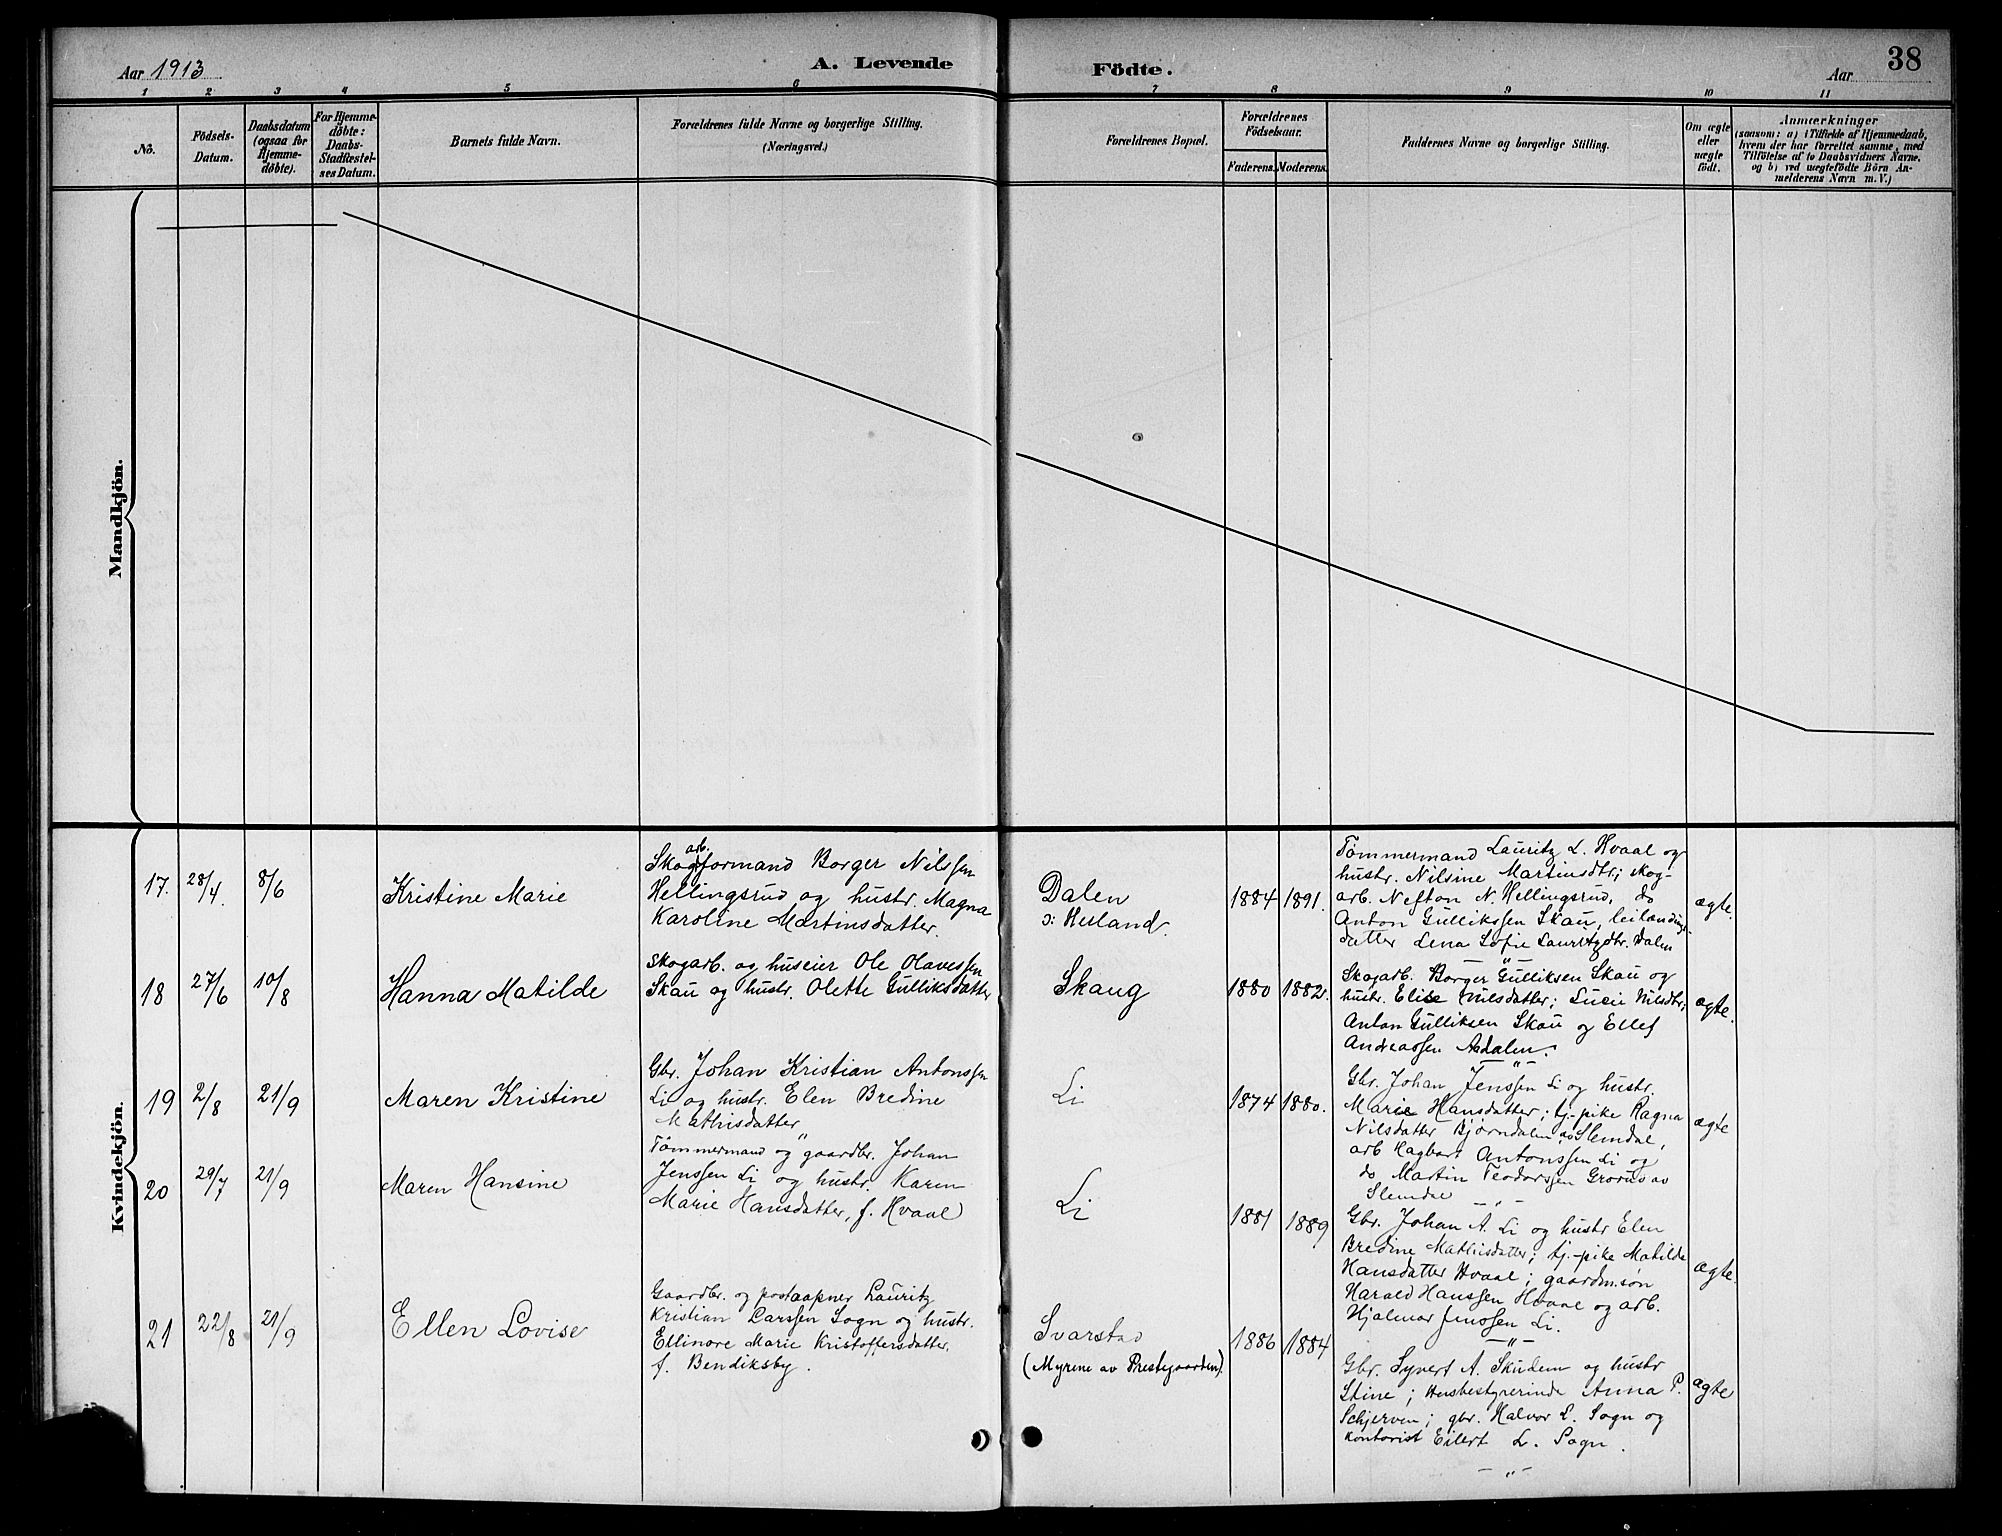 Aar 1913
A. Levende
Födte.
Aar
38
1 2 3 4 5 6 7 8 9 10 11
Nô.
Födsels-
Datum.
Daabsdatum
(ogsaa for
Hjemme-
døbte).
For Hjemme-
döbte:
Daabs-
Stadfæstel-
ses Datum.
Barnets fulde Navn.
Forældrenes fulde Navne og borgerlige Stilling.
(Næringsvei.)
Forældrenes Bopæl.
Forældrenes
Födselsaar.
Faderens. Moderens.
Faddernes Navne og borgerlige Stilling.
Om ægte
eller
uægte
födt.
Anmærkninger
(saasom: a) i Tilfælde af Hjemmedaab,
hvem der har forrettet samme, med
Tilföielse af to Daabsvidners Navne.
og b) ved uægtefödte Börn An-
melderens Navn m. V.)
Mandkjön.
Kvindekjön.
17. 28/4. 8/6
Kristine Marie
arb.
Skogformand Borger Nilssen
Hellingsrud og hustr. Magna
Karoline Martinsdatter.
Dalen
ɔ: Heiland.
1884 1891.
Tömmermand Lauritz L. Hvaal og
hustr. Nilsine Martinsdtr; skog-
arb. Nefton N. Hellingsrud, do
Anton Gulliksen Skau, leilændings-
datter Lena Sofie Lauritzdtr. Dalen
— " —
ægte.
18 27/6 10/8
Hanna Matilde
Skogarb. og huseier Ole Olavessen
Skau og hustr. Olette Gulliksdatter
Skaug
1880 1882.
Skogarb. Borger Gulliksen Skau og
hustr. Elise Nilsdatter; Lucie Nilsdtr;
Anton Gulliksen Skau og Ellef
Andreassen Aadalen.
— " —
ægte.
19 2/8 21/9
Maren Kristine
Gbr. Johan Kristian Antonssen
Li og hustr. Elen Bredine
Mathisdatter
"
Li
1874 1880.
Gbr. Johan Jenssen Li og hustr.
Marie Hansdatter; tj.-pike Ragna
Nilsdatter Bjørndalen av Slemdal,
arb Hagbart Antonssen Li og
do Martin Teodorssen Grorud av
Slemdal
— " —
ægte
20 29/7 21/9
Maren Hansine
Tömmermand og gaardbr. Johan
Jenssen Li og hustr. Karen
Marie Hansdatter, f. Hvaal
Li
1881 1889
Gbr. Johan A. Li og hustr Elen
Bredine Mathisdatter; tj.-pike Matilde
Hansdatter Hvaal; gaardm.søn
Harald Hanssen Hvaal og arb.
Hjalmar Jenssen Li.
— " —
ægte.
21 22/8 21/9
Ellen Lovise
Gaardbr. og postaapner Lauritz
Kristian Larssen Sogn og hustr.
Ellinore Marie Kristoffersdatter.
f. Bendiksby.
Svarstad
(Myrene av Prestegaarden).
1886 1884
Gbr. Syvert A. Skudem og hustr
Stine; Husbestyrerinde Anna P.
Schjerven; gbr. Halvor L. Sogn og
kontorist Eilert L. Sogn.
— " —
ægte